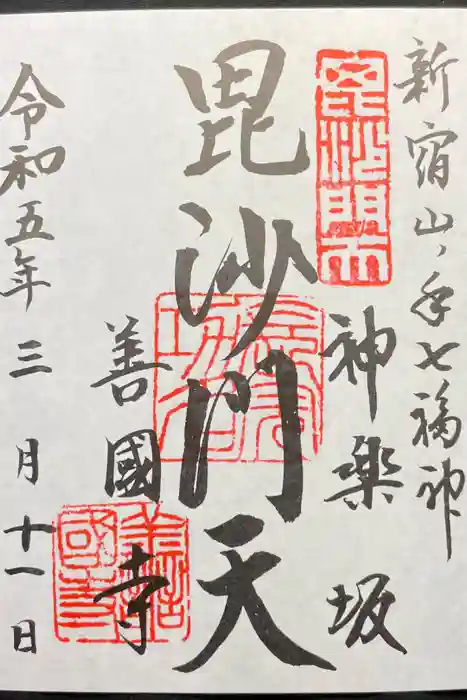 新宿山ノ手七福神
神楽坂
毘沙門天
毘沙門天
善國寺
令和五年三月十一日